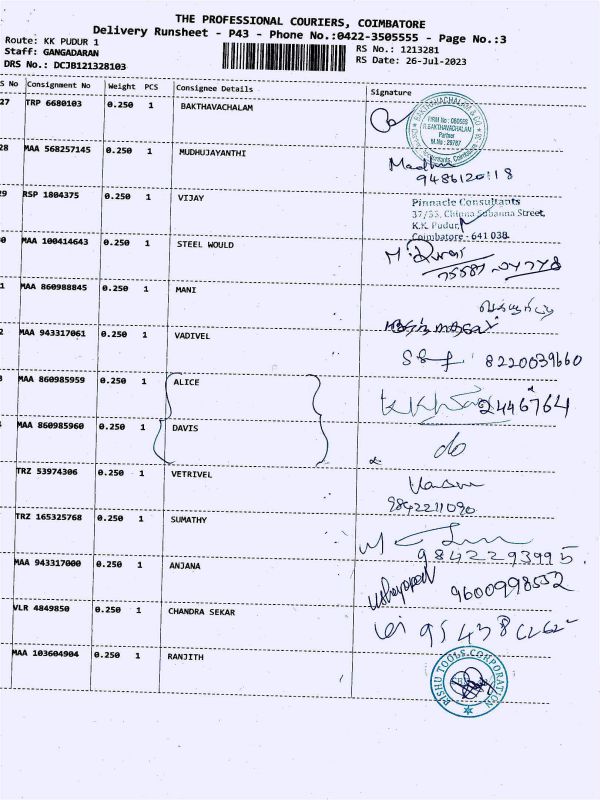 THE PROFESSIONAL COURIERS, COIMBATORE
Delivery Runsheet - P43 - Phone No.:0422-3505555 - Page No.:3
Route: KK PUDUR 1
RS No.: 1213281
Staff: GANGADARAN
RS Date: 26-Jul-2023
DRS No.: DCJB121328103
S No Consignment No Weight PCS Consignee Details Signature
27 TRP 6680103 0.250 1 BAKTHAVACHALAM
BAKTHAVACHALAM & CO
FIRM No
R.BAKTHAVACHALAM
Partner
M.No : 29787
28 MAA 568257145 1 MUDHUJAYANTHI
Madhu
9486120118
29 RSP 1804375 0.250 1 VIJAY
Pinnacle Consultants
37/33, Chinna Subanna Street,
K.K. Pudur,
Coimbatore - 641 038.
0 MAA 100414643 0.250 1 STEEL WOULD
1 MAA 860988845 0.250 1 MANI
2 MAA 943317061 0.250 1 VADIVEL
8220039660
3 MAA 860985959 0.250 1 ALICE
2446764
MAA 860985960 0.250 1 DAVIS
do
TRZ 53974306 0.250 1 VETRIVEL
9842211090
TRZ 165325768 0.250 1 SUMATHY
9842293995.
MAA 943317000 0.250 1 ANJANA
9600998552
VLR 4849850 0.250 1 CHANDRA SEKAR
MAA 103604904 0.250 1 RANJITH
RISHU TOOLS CORPORATION